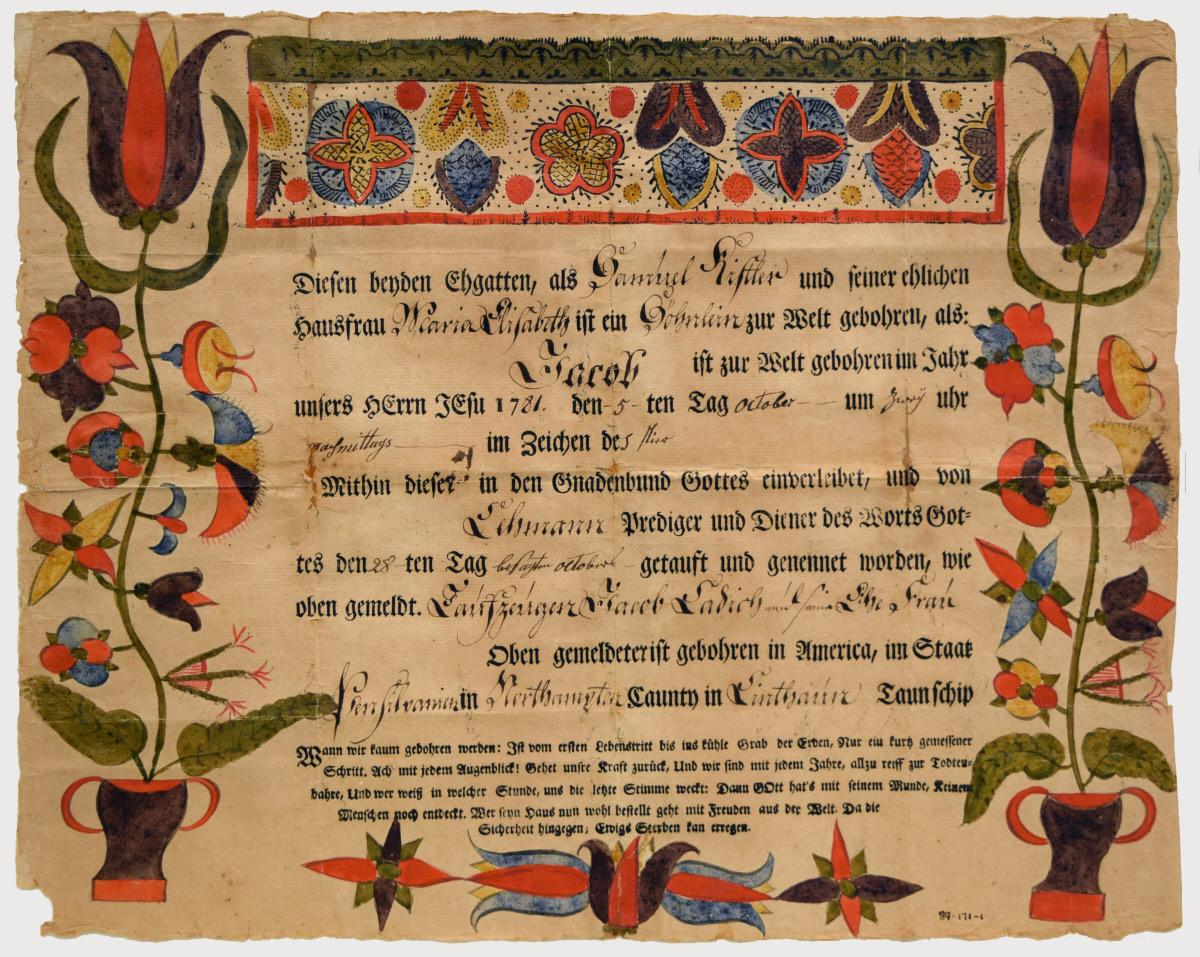 Diesen beyden Ehgatten, als Samuel Kistler und seiner ehlichen
Hausfrau Maria Elisabeth ist ein Söhnlein zur Welt gebohren, als:
Jacob ist zur Welt gebohren im Jahr
unsers HErrn JEsu 1781. den 5 ten Tag october um Zwey uhr
nachmittags im Zeichen des
Mithin dieser in den Gnadenbund Gottes einverleibet, und von
Lehmann Prediger und Diener des Worts Got-
tes den 28 ten Tag besagten octobers getauft und genennet worden, wie
oben gemeldt. Taufzeugen Jacob Ladich und seine Ehe Frau
Oben gemeldeter ist gebohren in America, im Staat
Pensilvanien in Northampton Caunty in Linthaun Taunschip
Wann wir kaum gebohren werden: Ist vom ersten Lebenstritt bis ins kühle Grab der Erden, Nur ein kurtz gemessener
Schritt. Ach mit jedem Augenblick! Gehet unsre Kraft zurück, Und wir sind mit jedem Jahre, allzu reiff zur Todten-
bahre, Und wer weiß in welcher Stunde, uns die letzte Stimme weckt: Dann GOtt hat's mit seinem Munde, Keinem
Menschen noch entdeckt. Wer seyn Haus nun wohl bestellt geht mit Freuden aus der Welt. Da die
Sicherheit hingegen; Ewigs Sterben kan erregen.
89-171-1